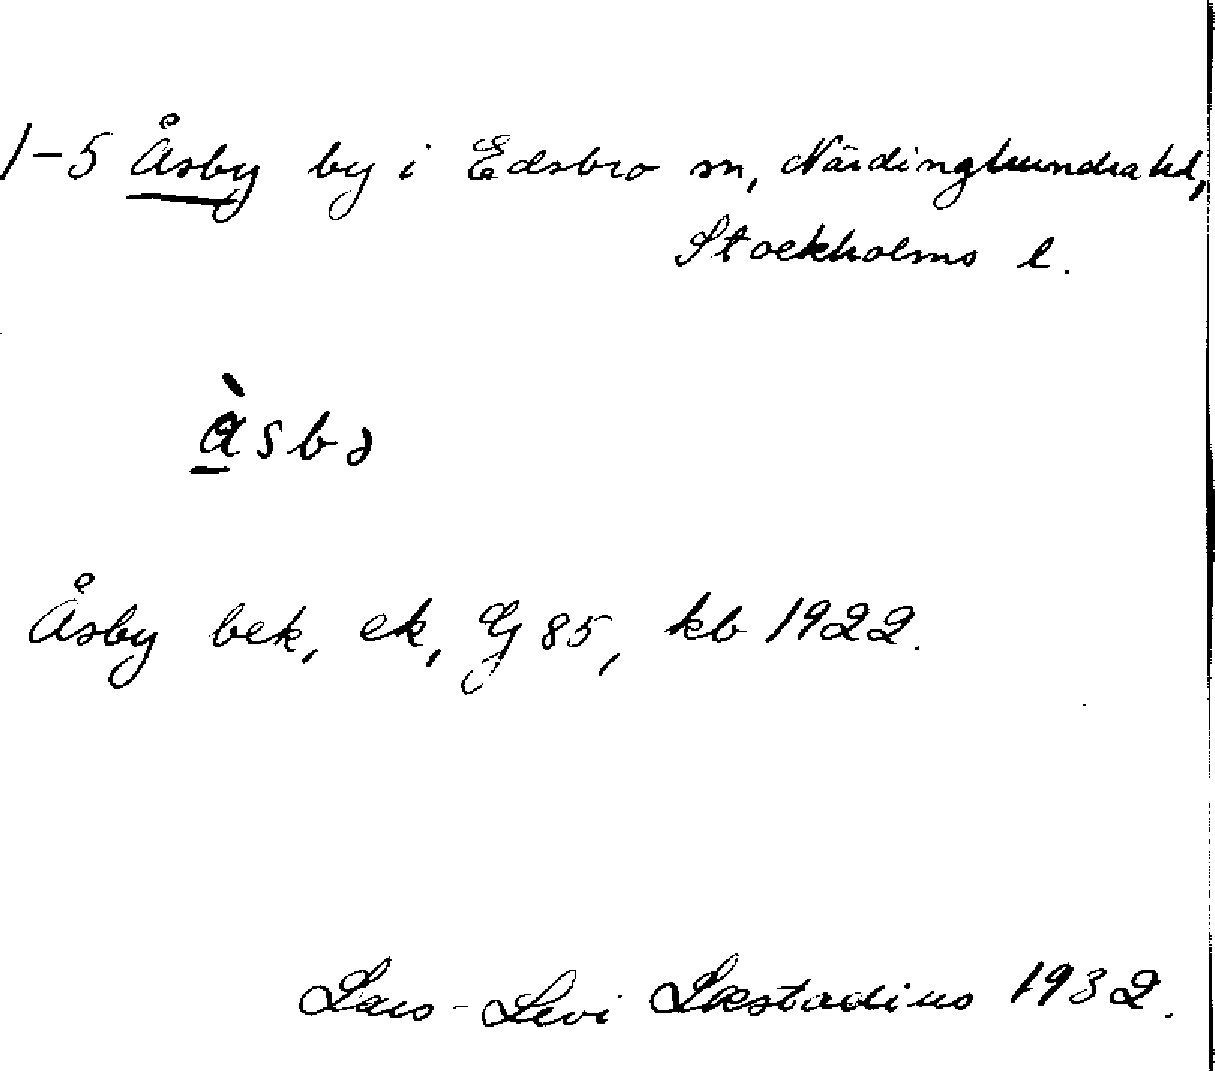 1-5 Åsby by i Edsbro sn, Närdinghundra hd,
Stockholms l.
àsbə
Åsby bek, ek, G 85, kb 1922.
Lars-Levi Læstadius 1932.